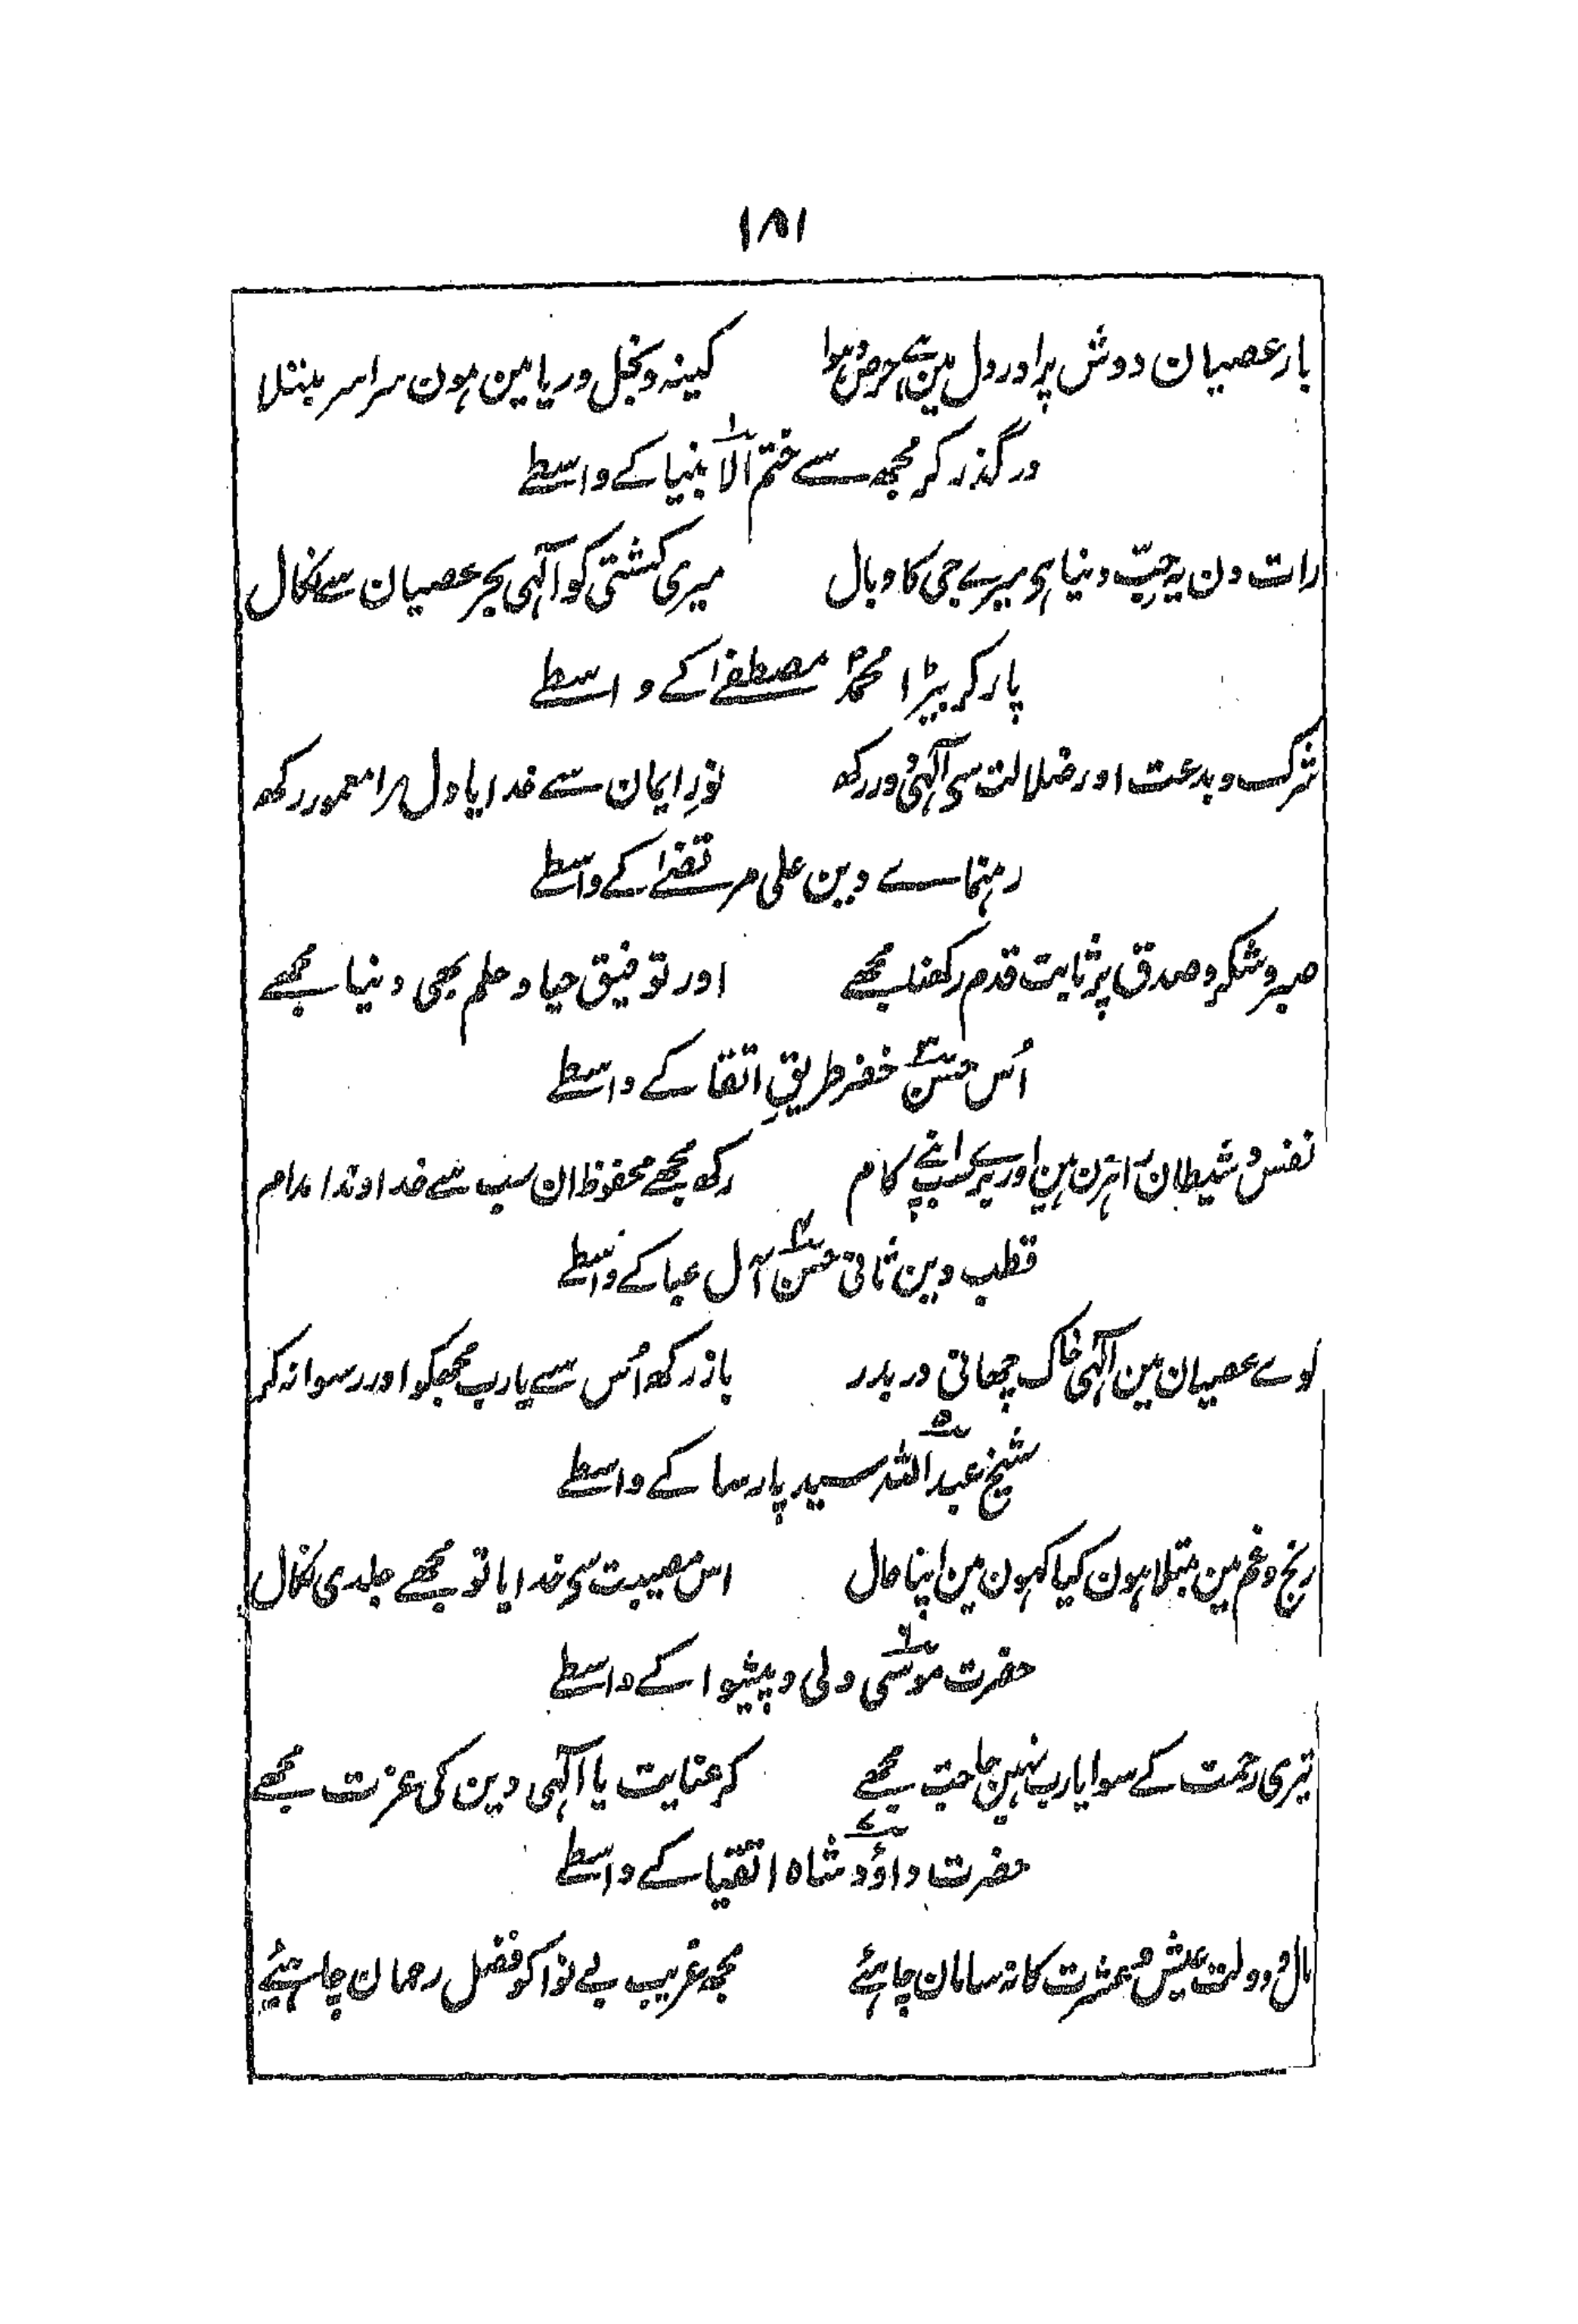 ۱۸۱
بار عصیان دوش پر اور دل مین ہے حرص و ہوا کینہ و بخل و ریا مین ہون سراسر مبتلا
در گذر کر مجھ سے ختم الانبیا کے واسطے
رات دن یہ حبِّ دنیا ہی میرے جی کا وبال میری کشتی کو الٰہی بحر عصیان سے نکال
پار کر بیڑا محمدؐ مصطفےٰ کے واسطے
شرک و بدعت اور ضلالت سی الٰہی دور رکھ نورِ ایمان سے خدایا دل مرا معمور رکھ
رہنماے دین علی مرتضےٰ کے واسطے
صبر و شکر و صدق پر ثابت قدم رکھنا مجھے اور توفیق حیا و حلم بھی دینا مجھے
اُس حسن خضر طریقِ اتقا کے واسطے
نفس و شیطان راہزن ہین اور یہ سب اپنے کام رکھ مجھے محفوظ ان سب سے خداوندا مدام
قطب دین ثانی حسن آل عبا کے واسطے
کوے عصیان مین الٰہی خاک چھانی در بدر باز رکھ اُس سے یارب مجھکو اور رسوا نہ کر
شیخ عبداللہ سید پارسا کے واسطے
رنج و غم مین مبتلا ہون کیا کہون مین اپنا حال اس مصیبت سی خدایا تو مجھے جلدی نکال
حضرت موسی ولی و پیشوا کے واسطے
تیری رحمت کے سوا یارب نہین حاجت مجھے کر عنایت یا الٰہی دین کی عزت مجھے
حضرت داؤد شاہ اتقیا کے واسطے
مال و دولت عیش و عشرت کا نہ سامان چاہئے مجھ غریب بے نوا کو فضل رحمان چاہئیے